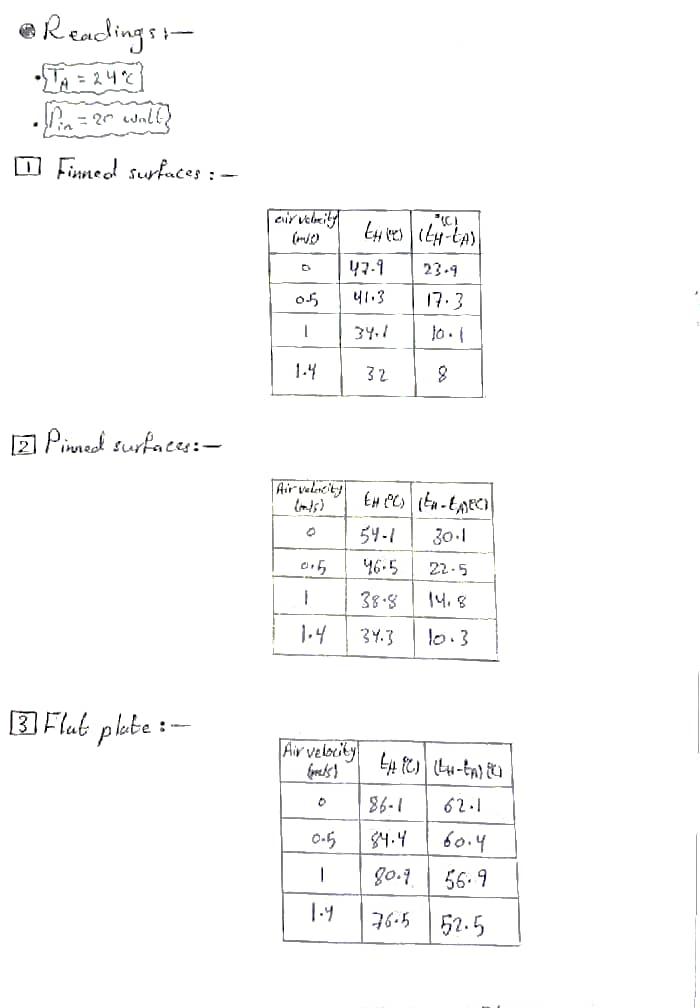 Readings:-
• T_A = 24°C
• P_in = 20 watt
1 Finned surfaces :-
air velocity (m/s) | t_H (°C) | (t_H - t_A) °(C)
0 | 47.9 | 23.9
0.5 | 41.3 | 17.3
1 | 34.1 | 10.1
1.4 | 32 | 8
2 Pinned surfaces:-
Air velocity (m/s) | t_H (°C) | (t_H - t_A) (°C)
0 | 54.1 | 30.1
0.5 | 46.5 | 22.5
1 | 38.8 | 14.8
1.4 | 34.3 | 10.3
3 Flat plate :-
Air velocity (m/s) | t_H (°C) | (t_H - t_A) (°C)
0 | 86.1 | 62.1
0.5 | 84.4 | 60.4
1 | 80.9 | 56.9
1.4 | 76.5 | 52.5